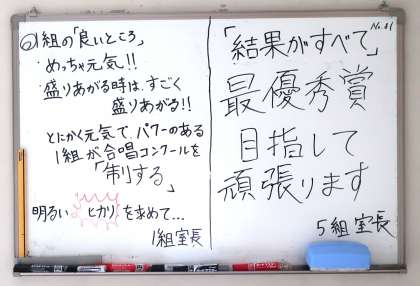 ◎1組の「良いところ」
・めっちゃ元気!!
・盛りあがる時は、すごく
盛りあがる!!
とにかく元気で、パワーのある
1組が合唱コンクールを
「制する」
明るいヒカリを求めて…
1組室長
No.41
「結果がすべて」
最優秀賞
目指して
頑張ります
5組室長